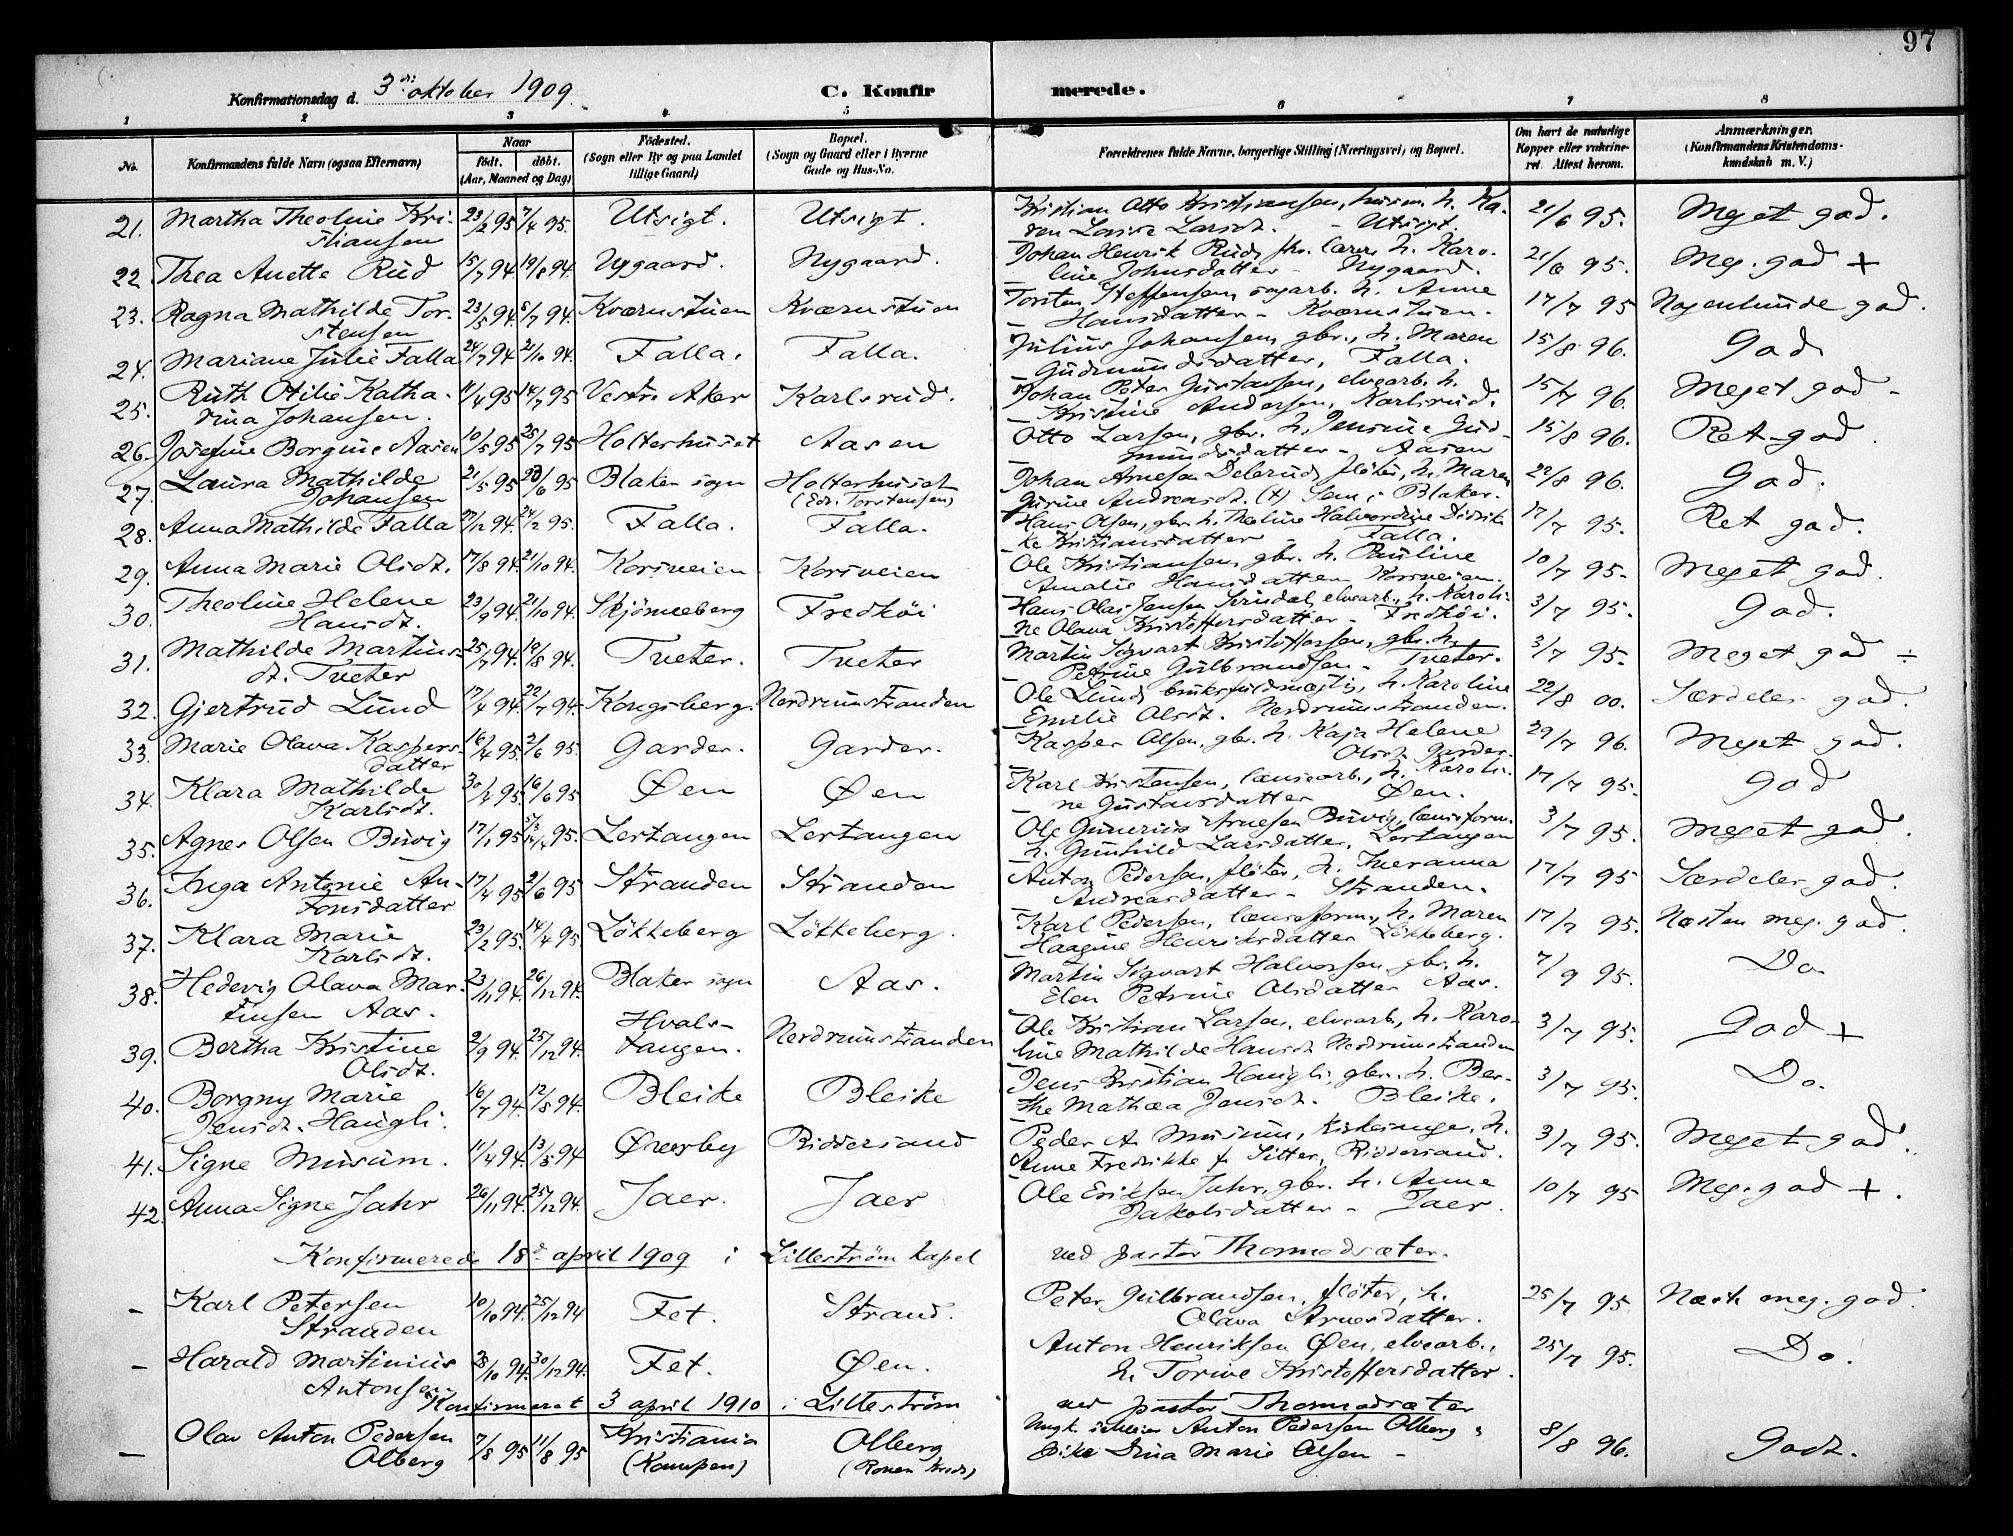 97
Konfirmationsdag d. 3die oktober 1909. C. Konfirmerede.
1 2 3 4 5 6 7 8
No. Konfirmandens fulde Navn (ogsaa Efternavn) Naar født. døbt. (Aar, Maaned og Dag) Fødested. (Sogn eller By og paa Landet tillige Gaard) Bopæl. (Sogn og Gaard eller i Byerne Gade og Hus-No. Forældrenes fulde Navne, borgerlige Stilling (Næringsvei) og Bopæl. Om havt de naturlige Kopper eller vaccineret. Attest herom. Anmærkninger. (Konfirmandens Kristendomskundskab m. V.)
21. Martha Theoline Kri- 23/2 95 7/4 95. Utsigt. Utsigt. Kristian Otto Kristiansen, husm. h. Ka- 21/6 95. Meget god.
stiansen ren Lovise Larsdt. - Utsigt.
22. Thea Anette Rud 15/7 94 19/8 94. Nygaard. Nygaard. Johan Henrik Rud, fho. lærer, h. Karo- 21/6 95. Meg. god +
line Johnsdatter - Nygaard.
23. Ragna Mathilde Tor- 23/5 94. 8/7 94. Kværnstuen Kværnstuen Torsten Steffensen, sagarb. h. Anne 17/7 95 Nogenlunde god.
stensen Hansdatter - Kværnstuen.
24. Mariane Julie Falla 24/7 94 21/10 94. Falla. Falla. Julius Johansen, gbr., h. Maren 15/8 96. God
Gudmundsdatter, Falla.
25. Ruth Otilie Katha- 11/4 95 14/7 95 Vestre Aker Karlsrud. Johan Peter Gustavsen, elvearb. h. 15/7 96. Meget god -
rina Johansen. Kristine Andersen, Karlsrud.
26. Josefine Borgine Aasen 10/5 95 28/7 95 Holterhuset Aasen Otto Larsen, gbr. h. Jensine Gud- 15/8 96. Ret god.
mundsdatter - Aasen
27. Laura Mathilde 21/5 95 20/6 95 Blaker sogn Holterhuset Johan Arnesen Delerud, fløter, h. Maren 22/8 96. God.
Johansen (Edv. Torstensen) Gurine Andreasdt. (+) Sem i Blaker.
28. Anna Mathilde Falla 22/12 94. 24/2 95. Falla. Falla. Hans Olsen, gbr. h. Theoline Halvordine Didrik- 17/7 95. Ret god.
ke Kristiansdatter - Falla.
29. Anna Marie Olsdt. 17/8 94. 21/10 94. Korsveien Korsveien Ole Kristiansen, gbr. h. Pauline 10/7 95. Meget god.
Amalie Hansdatter, Korsveien.
30. Theoline Helene 23/9 94. 21/10 94. Skjønneberg Fredkøi Hans Olaf Jensen Sundal, elvearb., h. Karoli- 3/7 95. God.
Hansdt. ne Olava Kristoffersdatter - Fredkøi.
31. Mathilde Martins- 25/7 94. 19/8 94. Tveter. Tveter Martin Sigvart Kristoffersen, gbr. h. 3/7 95. Meget god ÷
dt. Tveter Petrine Gulbrandsen - Tveter.
32. Gjertrud Lund 17/4 94. 22/7 94. Kongsberg. Nerdrumstranden Ole Lund, bruksfuldmægtig, h. Karoline 22/8 00. Særdeles god.
Emilie Olsdt. Nerdrumstranden.
33. Marie Olava Kaspers- 16/4 95. 2/6 95. Garder. Garder. Kasper Olsen, gbr. h. Kaja Helene 29/7 96. Meget god.
datter Olsdt. Garder.
34. Klara Mathilde 30/4 95. 16/6 95 Øen Øen Karl Kristensen, lænsearb., h. Karoli- 17/7 95. God
Karlsdt. ne Gustavsdatter Øen.
35. Agnes Olsen Buvig 17/1 95 95. Lertangen Lertangen Ole Gunerius Arnesen Buvig, lænseform. 3/7 95. Meget god.
h. Gunhild Larsdatter, Lertangen
36. Inga Antonie An- 17/4 95 2/6 95 Stranden Stranden Anton Pedersen, fløter, h. Iveranna 17/7 95 Særdeles god.
tonsdatter Andreasdatter - Stranden.
37. Klara Marie 23/2 95. 14/4 95. Løkkeberg Løkkeberg. Karl Pedersen, lænseform., h. Maren 17/7 95. Næsten meg. god.
Karlsdt. Haagine Henriksdatter Løkkeberg.
38. Hedevig Olava Mar- 23/11 94. 26/12 94. Blaker sogn Aas. Martin Sigvart Halvorsen, gbr. h. 7/9 95. Do.
tinsen Aas. Elen Petrine Olsdatter Aas.
39. Bertha Kristine 2/9 94. 25/12 94. Hvals- Nerdrumstranden Ole Kristian Larsen, elvearb., h. Karo- 3/7 95. God +
Olsdt. tangen. line Mathilde Hansdt. Nerdrumstranden
40. Borgny Marie 16/7 94. 12/8 94. Bleike Bleike Jens Kristian Haugli, gbr. h. Ber- 3/7 95. Do.
Jensdt. Haugli. the Mathea Jensdt. Bleike.
41. Signe Musum. 11/4 94. 13/5 94 Øveresby Riddersand Peder A. Musum, Kirkesanger, h. 3/7 95. Meget god.
Anne Fredrikke f. Sitter, Riddersand.
42. Anna Signe Jahr 26/11 94. 25/12 94. Jaer. Jaer Ole Eriksen Jahr, gbr. h. Anne 10/7 95 Meg. god +.
Jakobsdatter - Jaer.
Konfirmerede 18de april 1909 i Lillestrøm kapel ved pastor Thormodsæter.
- Karl Petersen 10/10 94. 25/12 94 Fet. Strand. Peter Gulbrandsen, fløter, h. 25/7 95 Næsten meg. god.
Stranden Olava Arnesdatter.
- Harald Martinius 28/10 94. 30/12 94. Fet. Øen. Anton Henriksen Øen, elvearb., 25/7 95. Do.
Antonsen h. Torine Kristoffersdatter.
Konfirmeret 3 april 1910 i Lillestrøm ved pastor Thormodsæter
- Olav Anton Pedersen 7/8 95 11/8 95 Kristiania Olberg Anton Pedersen Olberg & 8/8 96. Godt.
Olberg (Kampen) pike Gina Marie Olsen -